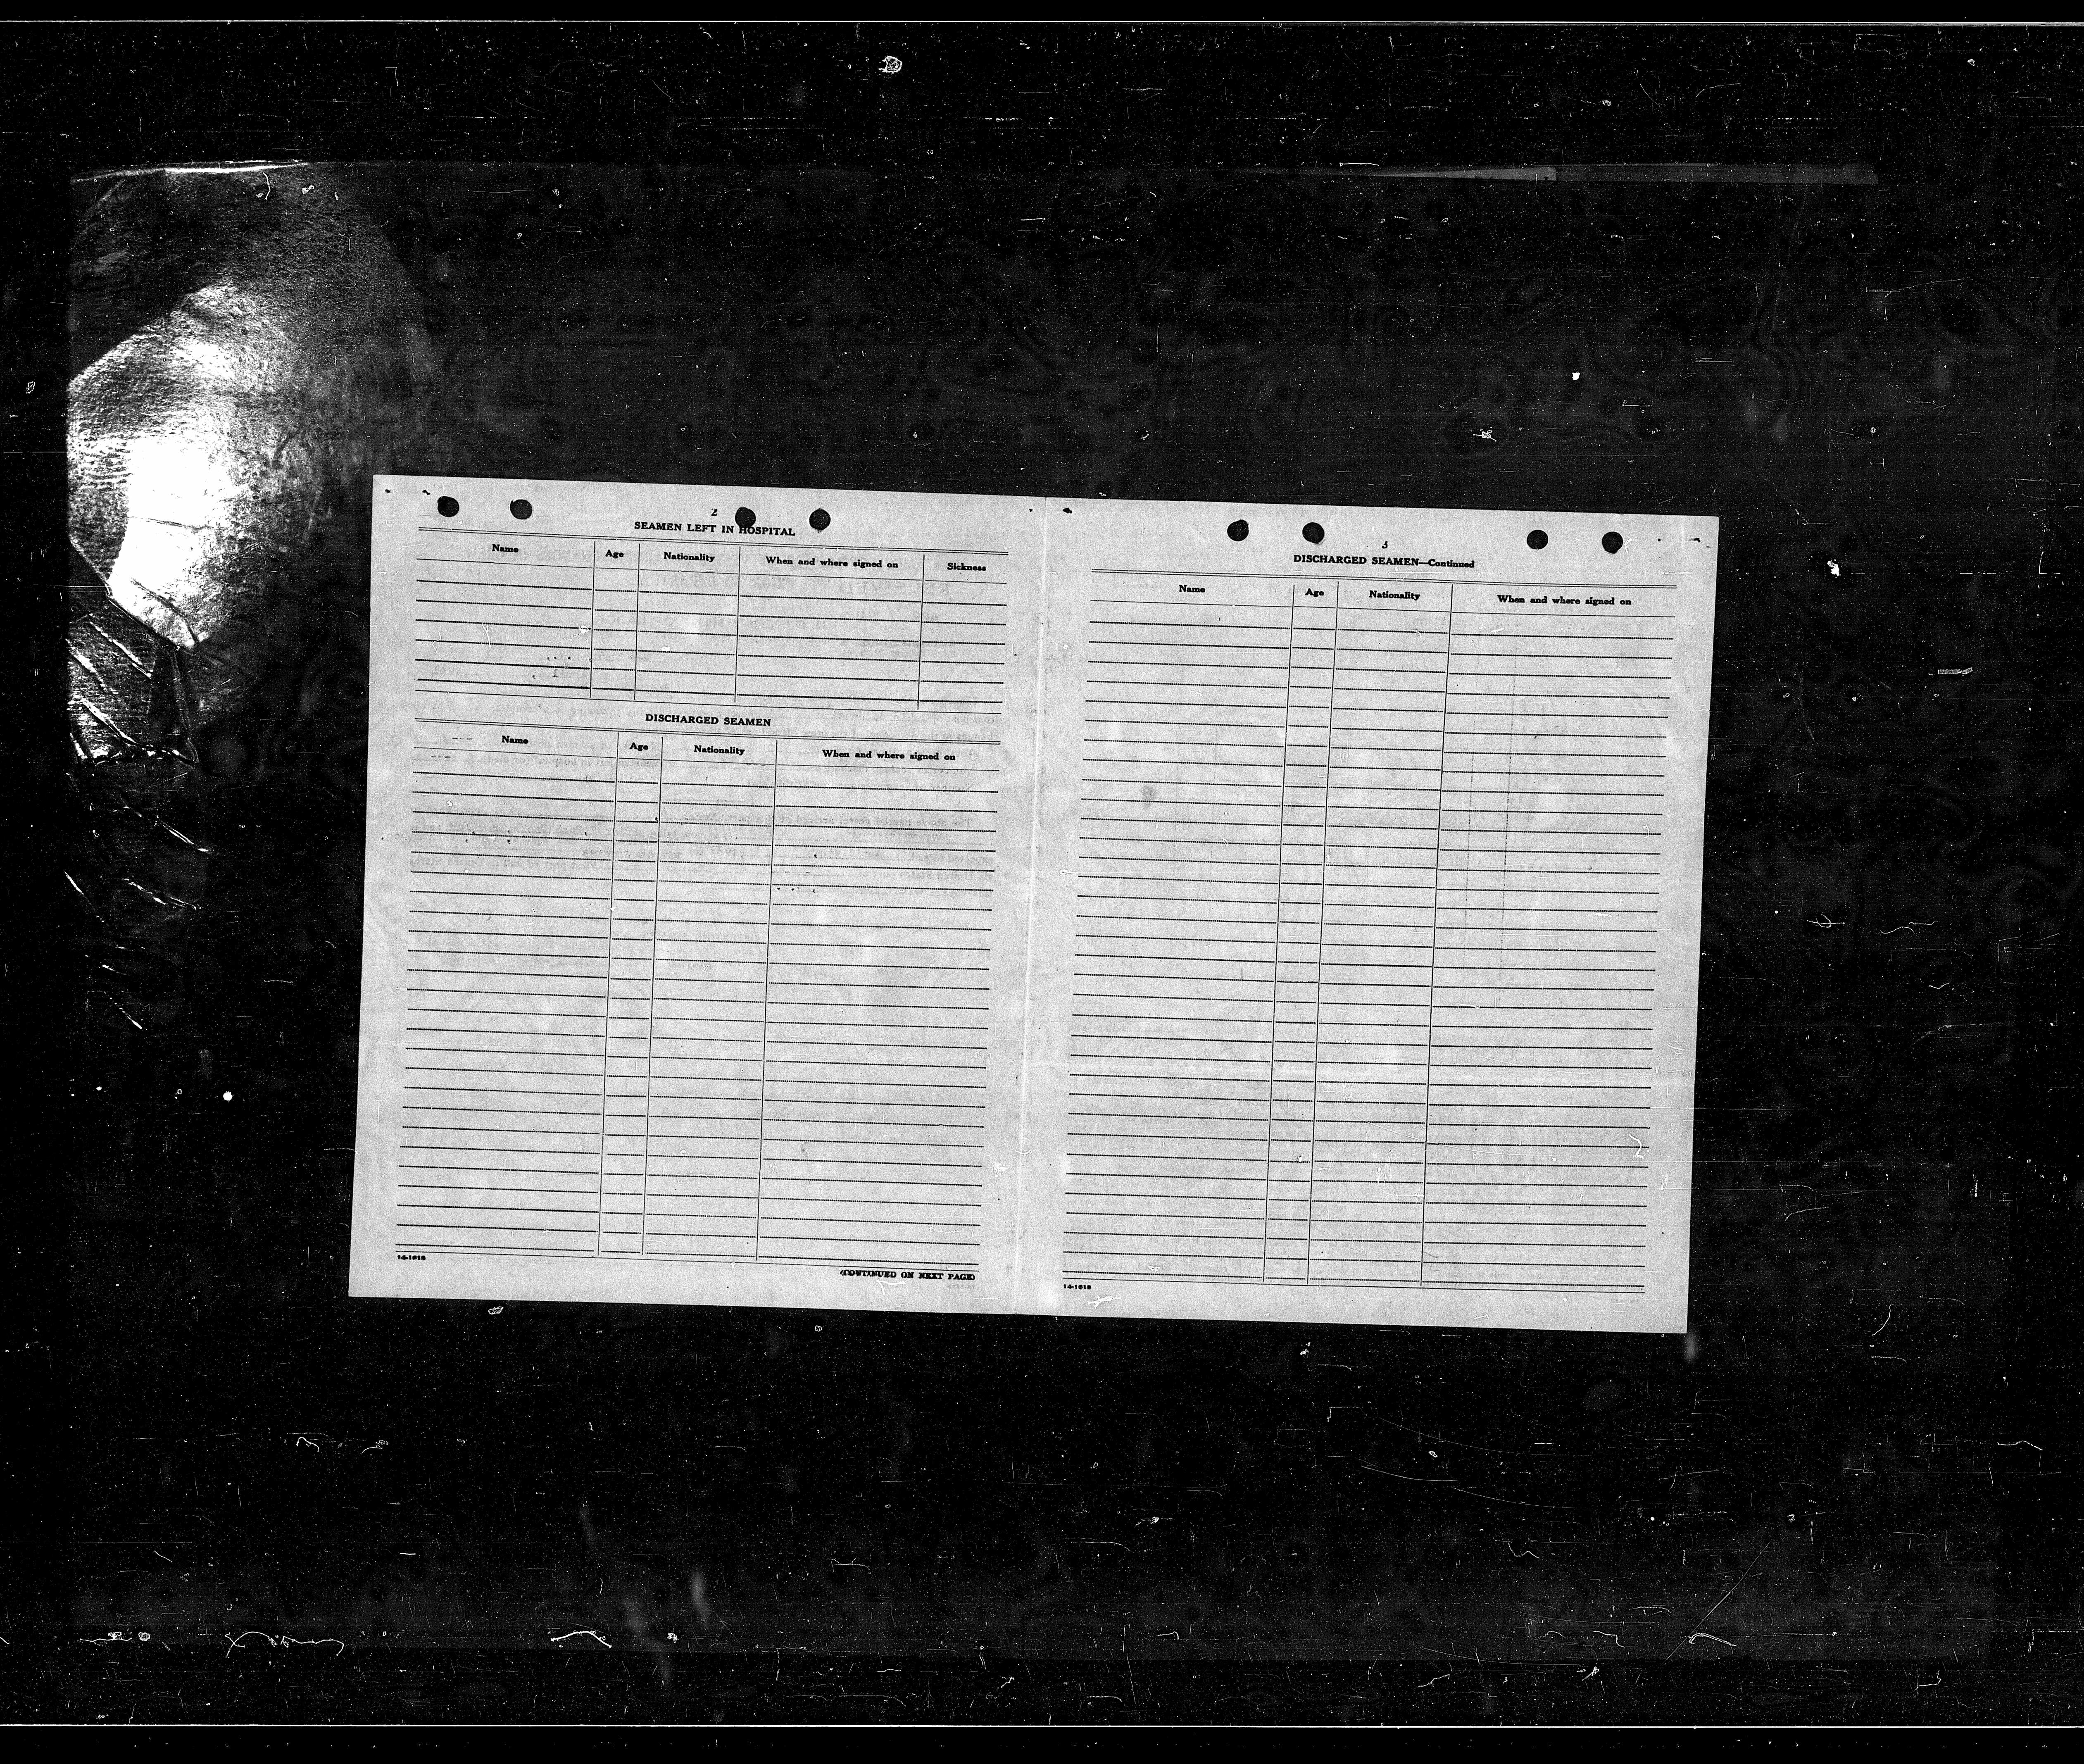 2
SEAMEN LEFT IN HOSPITAL
Name Age Nationality When and where signed on Sickness
DISCHARGED SEAMEN
Name Age Nationality When and where signed on
14-1918
(CONTINUED ON NEXT PAGE)
3
DISCHARGED SEAMEN—Continued
Name Age Nationality When and where signed on
14-1918